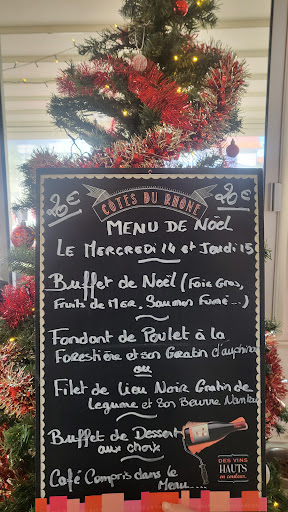 20€ 20€
CÔTES DU RHÔNE
MENU DE NOËL
LE MERCREDI 14 et Jeudi 15
Buffet de Noël (Foie Gras,
Fruits de MER, Saumon Fumé...)
Fondant de Poulet à la
Forestière et son Gratin d'auphinois
ou
Filet de Lieu Noir Gratin de
Legume et son Beurre Nantais
Buffet de Dessert
aux choix
DES VINS
HAUTS
en couleurs
Café Compris dans le
Menu